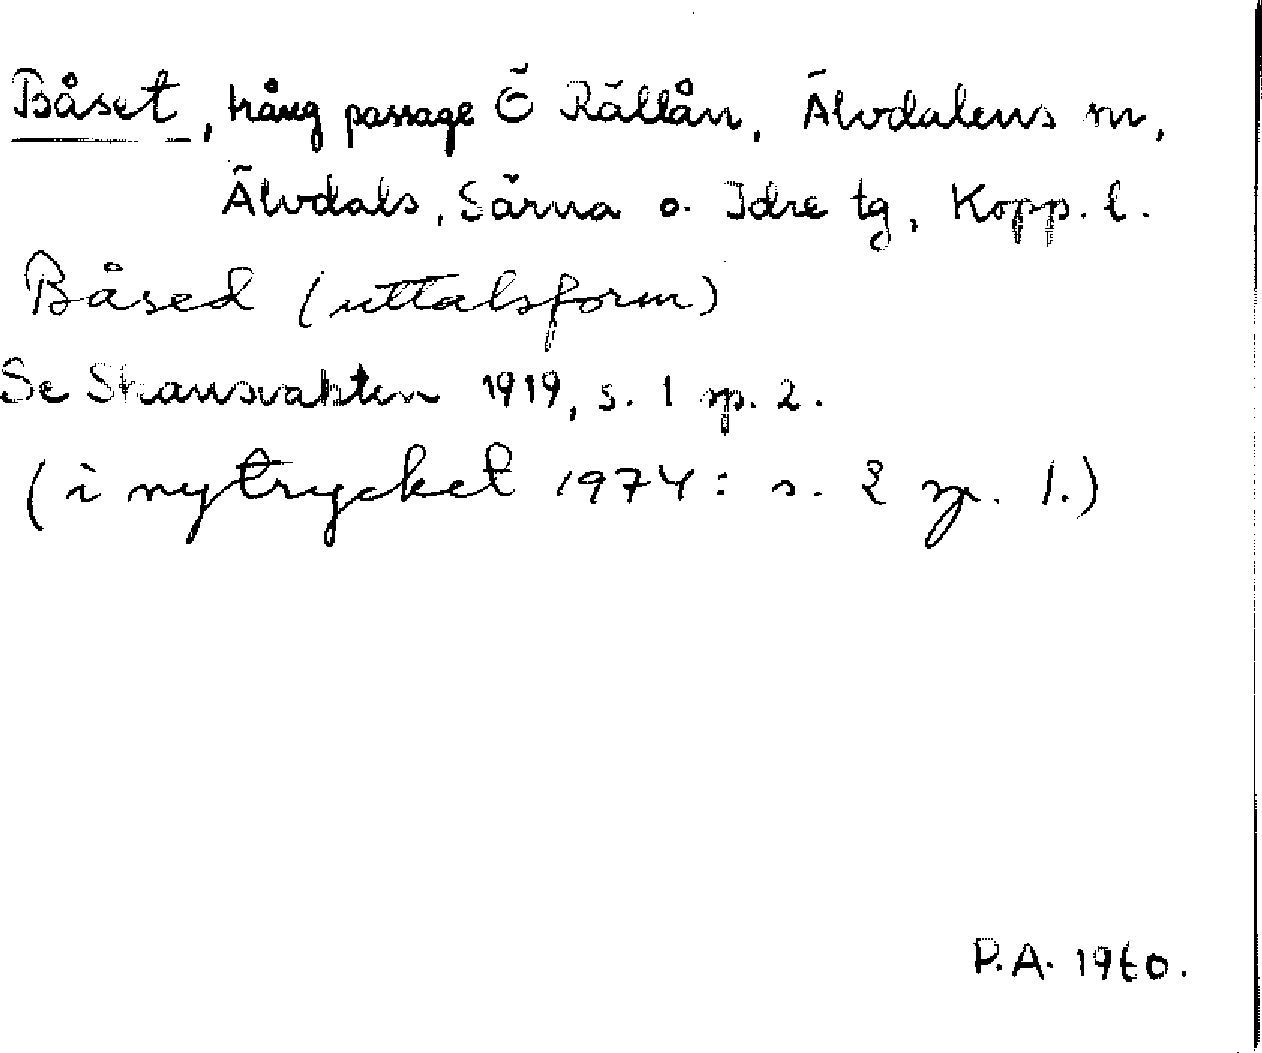 Båset, trång passage Ö Rällån, Älvdalens sn,
Älvdals, Särna o. Idre tg, Kopp. l.
Båsed (uttalsform)
Se Skansvakten 1919, s. 1 sp. 2.
(i nytrycket 1974: s. 2 sp. 1.)
P.A. 1960.